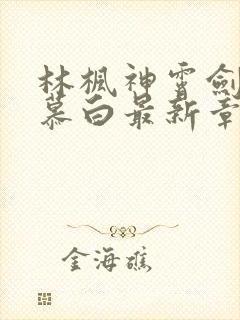 林楓神霄劍
慕白最新章
金海礁